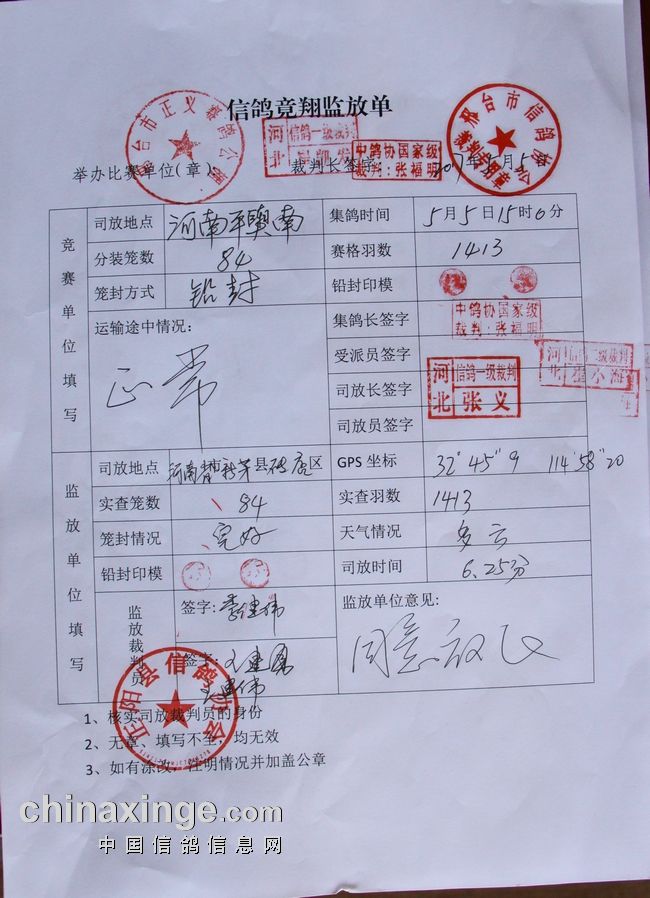 信鸽竞翔监放单
邢台市正义赛鸽公棚
河北 信鸽一级裁判
中鸽协国家级
裁判：张福明
邢台市信鸽协会
举办比赛单位(章)
裁判长签字
5月5日
竞赛单位填写
司放地点 河南平舆南 集鸽时间 5月5日15时0分
分装笼数 84 赛格羽数 1413
笼封方式 铅封 铅封印模
运输途中情况： 正常
集鸽长签字 中鸽协国家级
裁判：张福明
受派员签字
河北 信鸽一级裁判
张义
河北 信鸽一级裁判
司放长签字
司放员签字
监放单位填写
司放地点 河南 县 区 GPS 坐标 32°45"9 114°58"20
实查笼数 84 实查羽数 1413
笼封情况 完好 天气情况 多云
铅封印模 司放时间 6.25分
监放裁判员
签字: 李建伟
监放单位意见:
同意放飞
签字:
正阳县信鸽协会
1、核实司放裁判员的身份
2、无章、填写不全，均无效
3、如有涂改，注明情况并加盖公章
chinaxinge.com
中国信鸽信息网